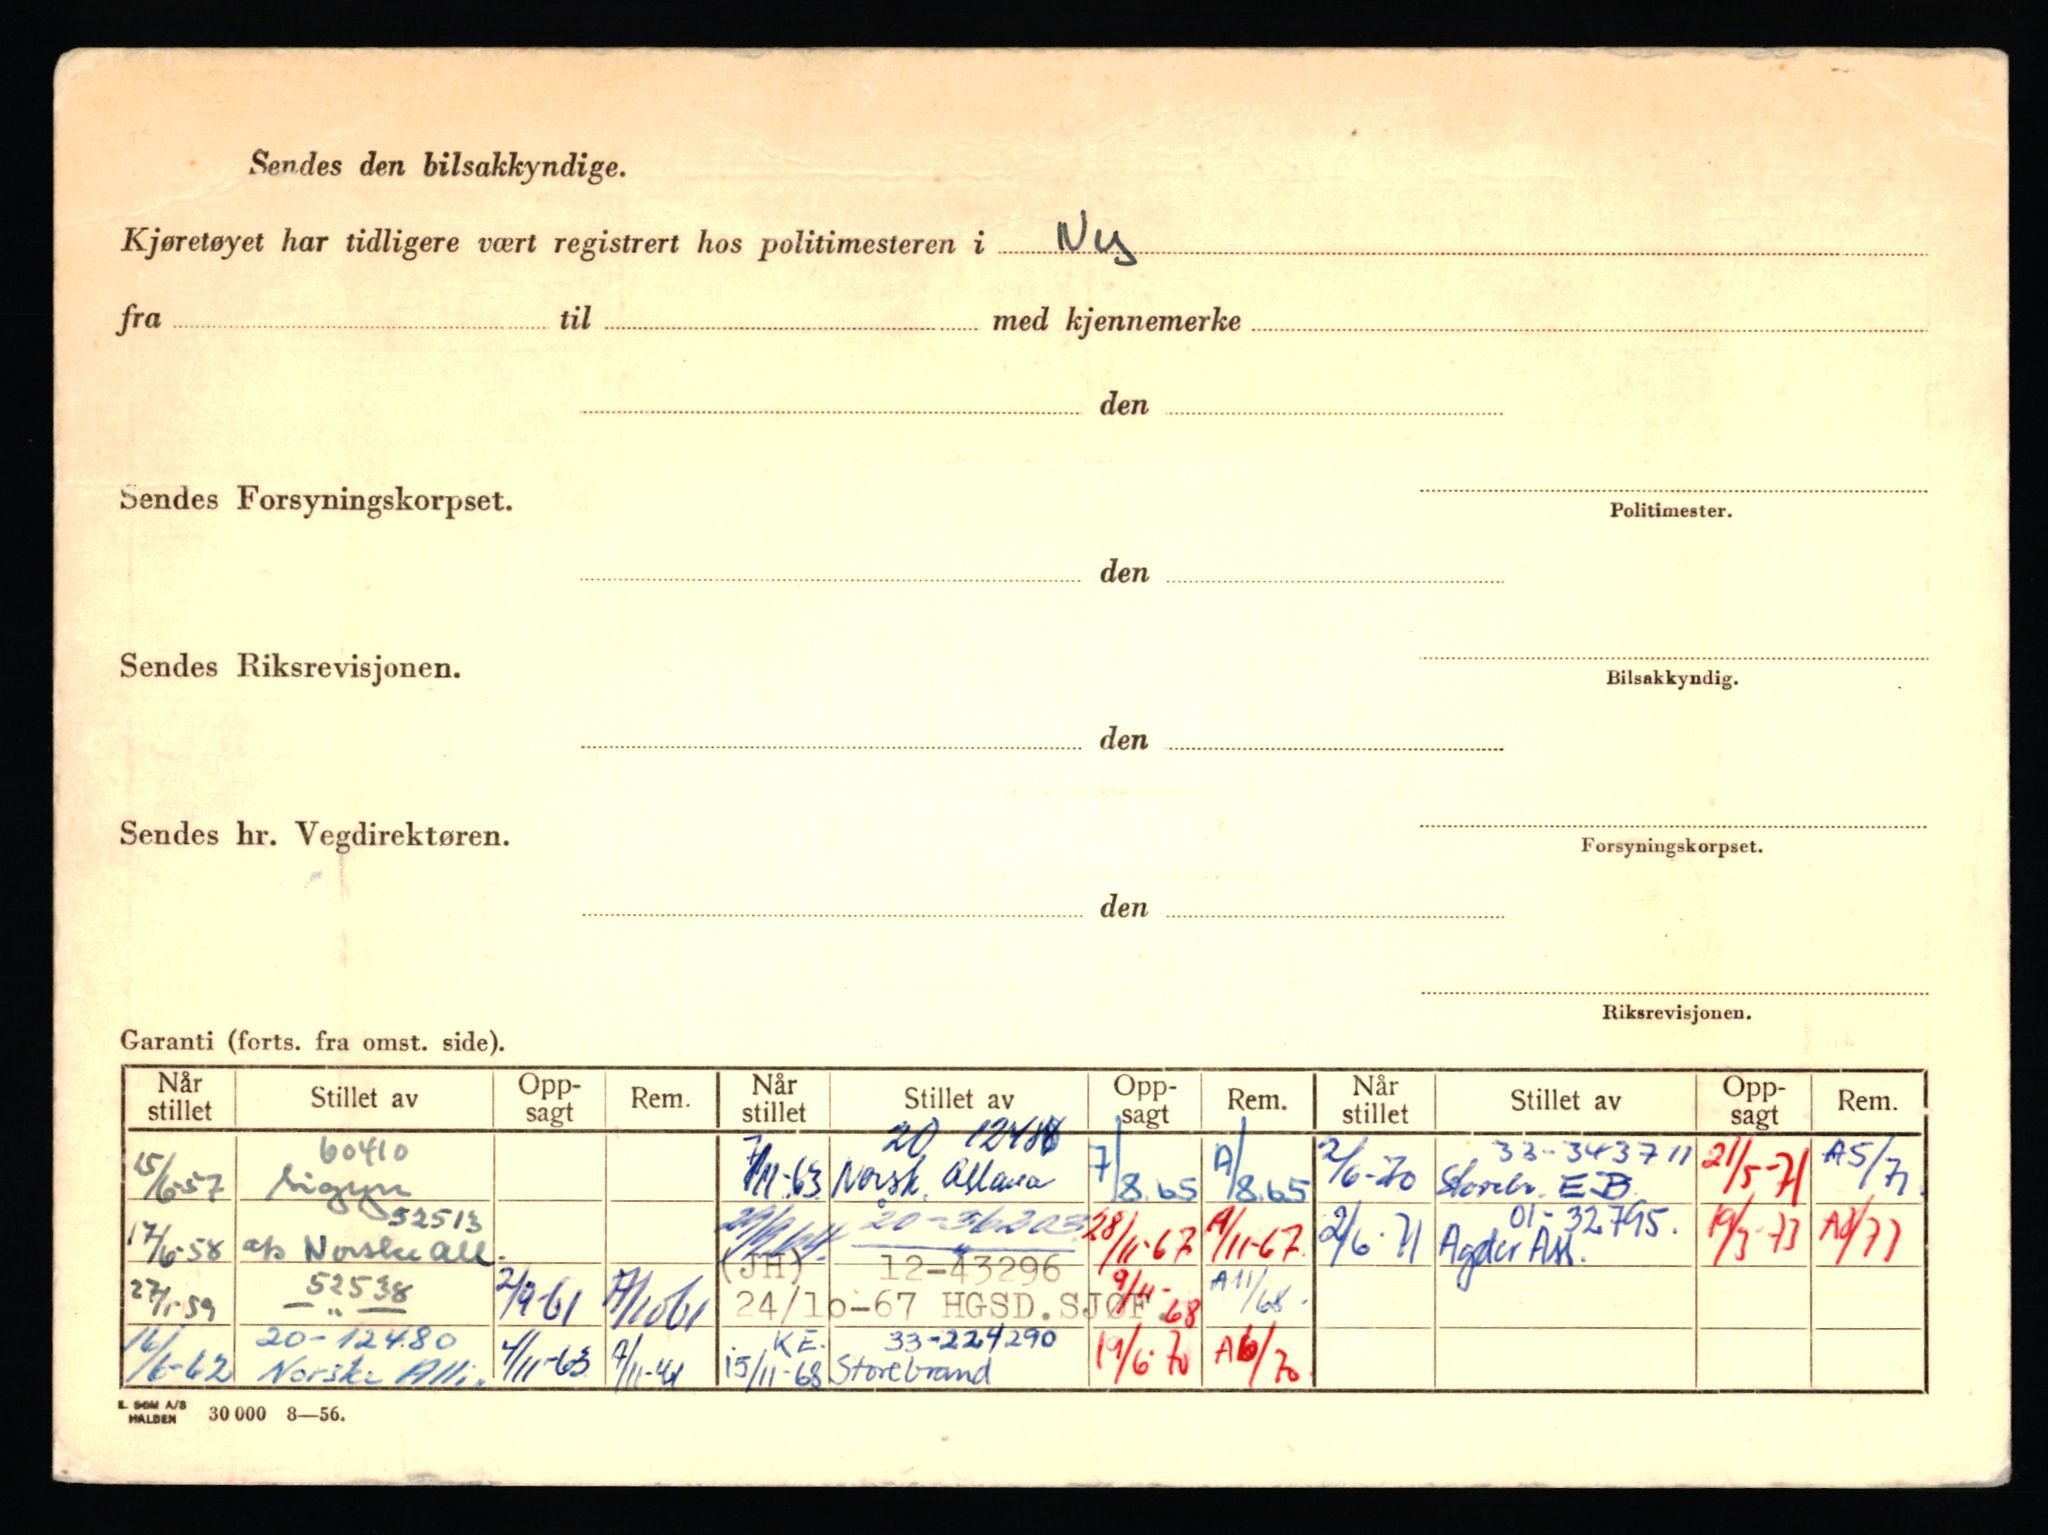 Sendes den bilsakkyndige.
Kjøretøyet har tidligere vært registrert hos politimesteren i Ny
fra til med kjennemerke
den
Sendes Forsyningskorpset.
Politimester.
den
Sendes Riksrevisjonen.
Bilsakkyndig.
den
Sendes hr. Vegdirektøren.
Forsyningskorpset.
den
Riksrevisjonen.
Garanti (forts. fra omst. side).
Når stillet Stillet av Opp-sagt Rem. Når stillet Stillet av Opp-sagt Rem. Når stillet Stillet av Opp-sagt Rem.
60410
15/6-57 Sigyn
52513
17/6-58 a/s Norske All.
52538
27/1-59 — " — 2/9-61 A/10 61
20-12480
16/6-62 Norske Alli. 4/11-63
20
7/11-63 Norsk. 7/8.65 A/8.65
29/9 64 " 28/11-67 A/11-67
(JH) 12-43296
24/10-67 HGSD.SJØF. 9/11-68 A11/68.
KE. 33-224290
15/11-68 Storebrand 19/6-70 A6/70
33-343711
2/6-70 Storebr. E.B. 21/5-71 A5/71.
01-32795.
2/6-71 Agder Ass. 19/3-73
E. SEM A/S
HALDEN 30 000 8—56.